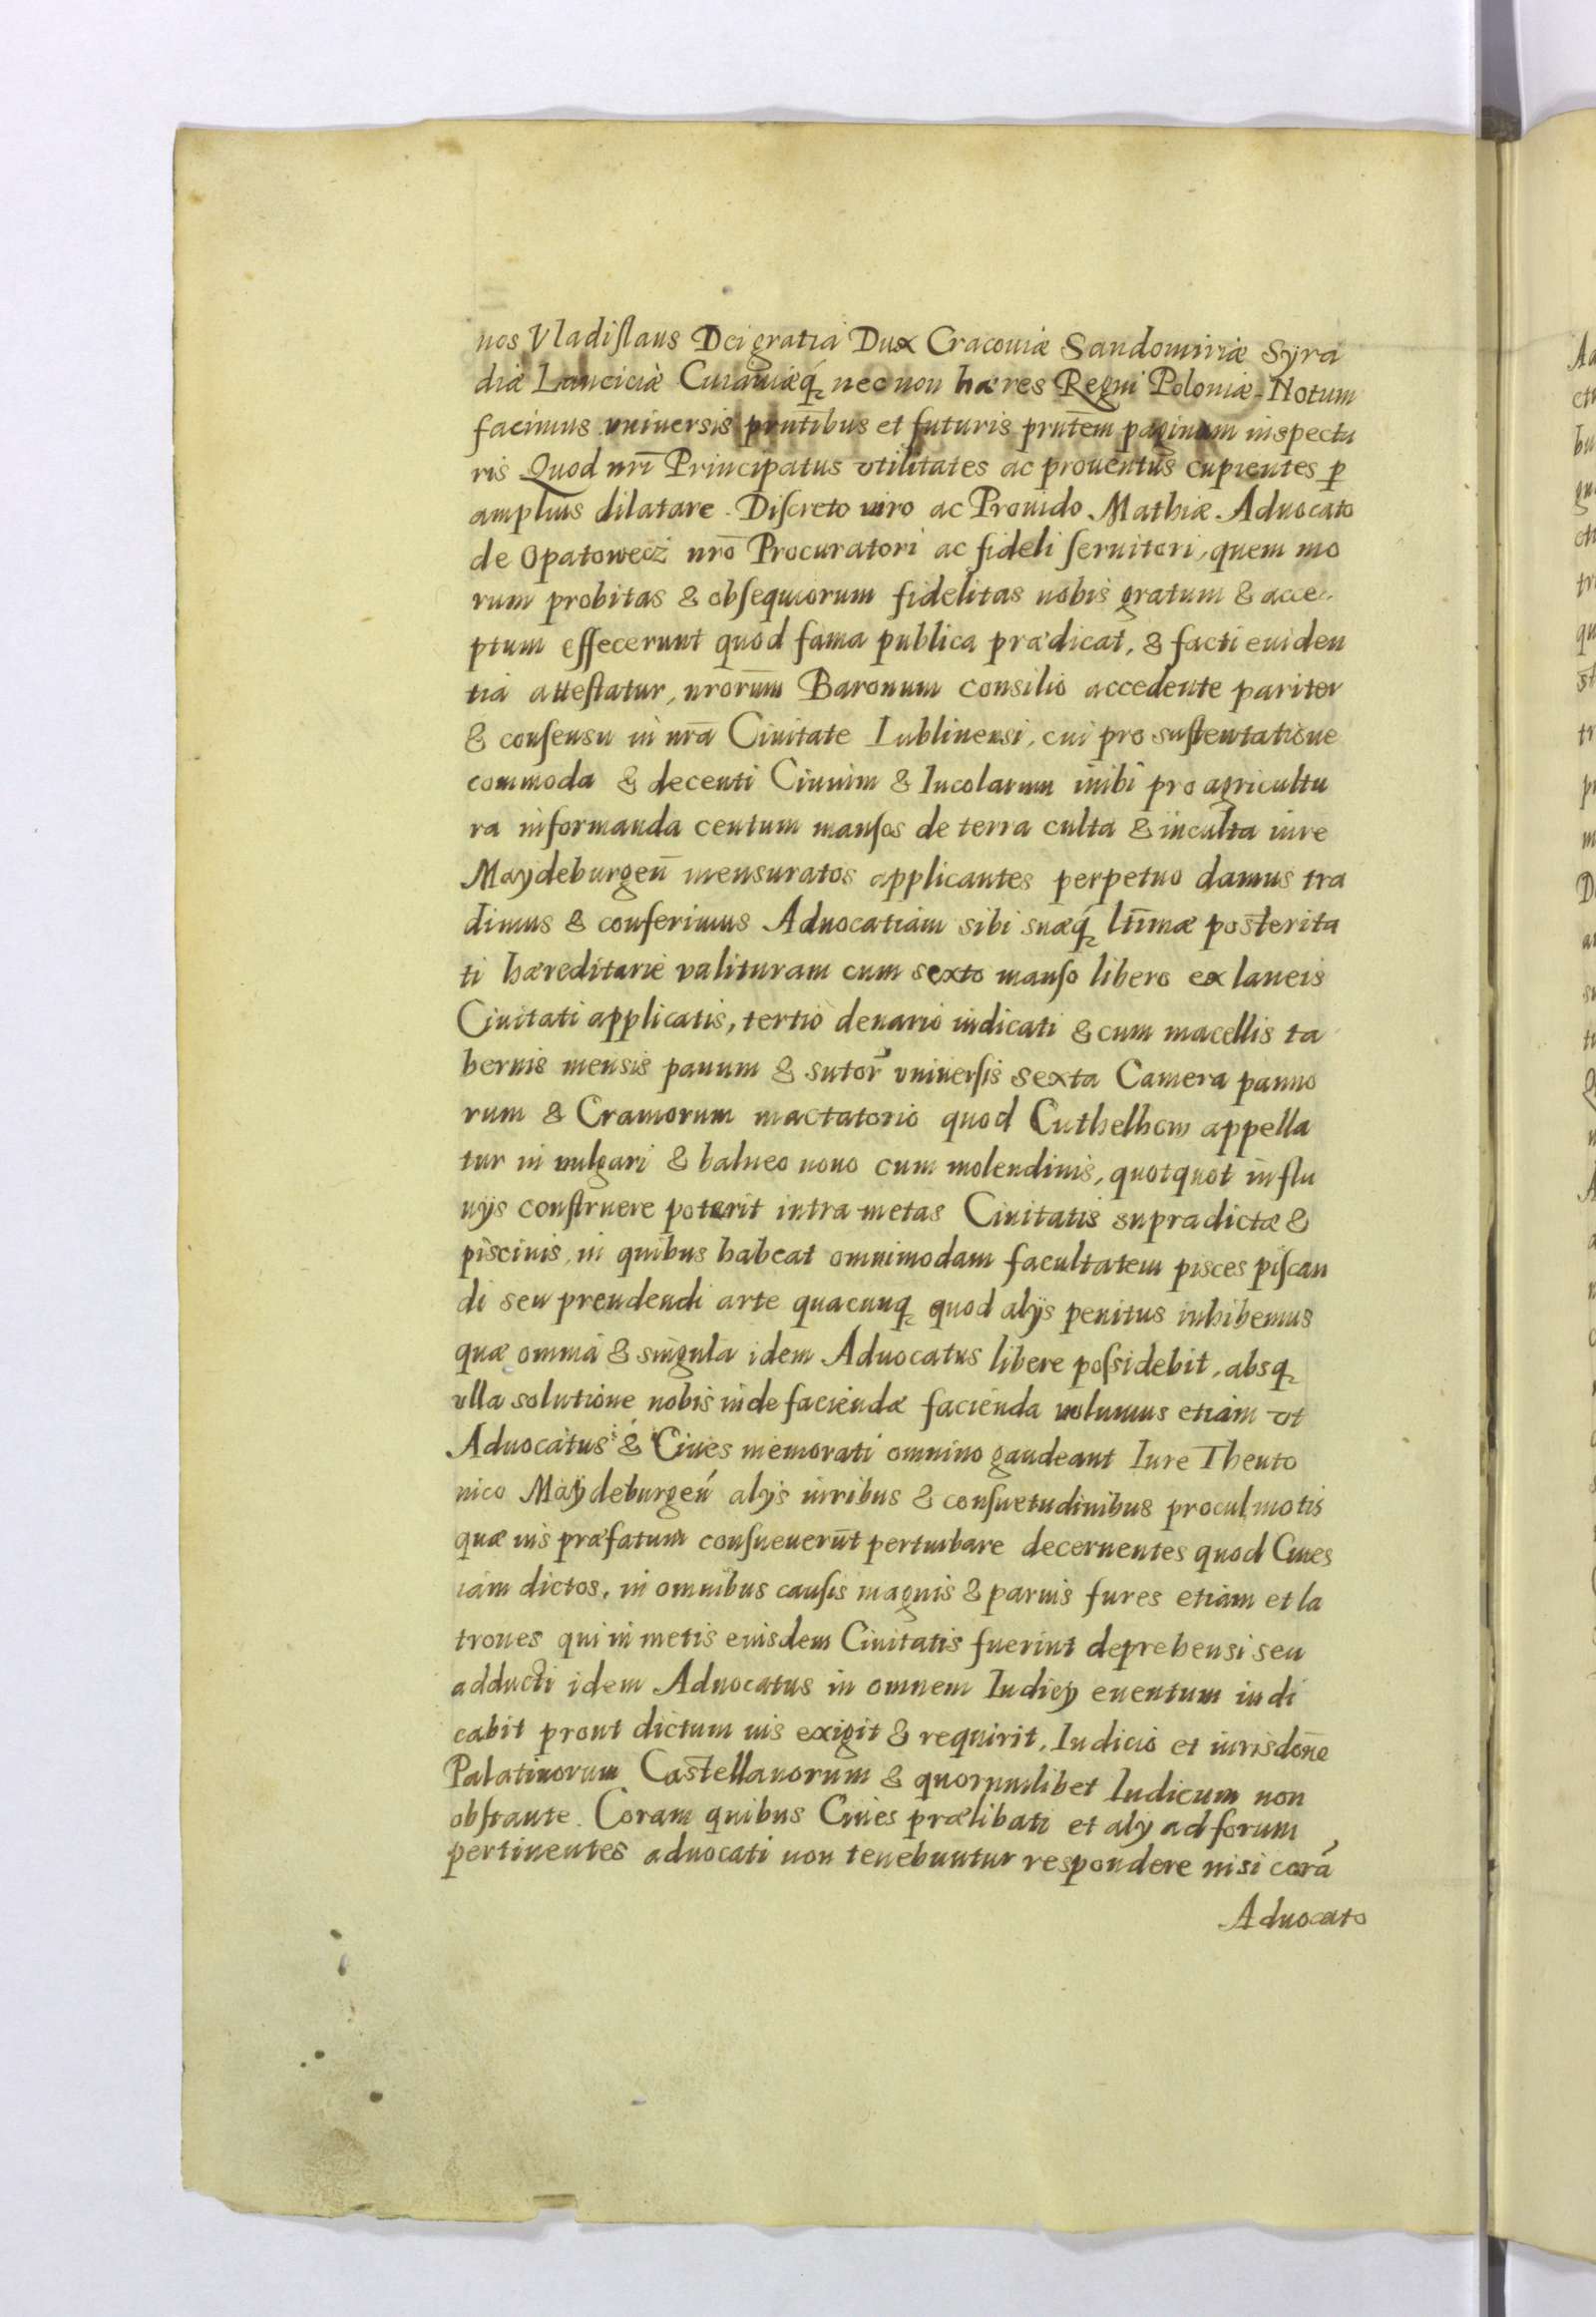 nos Vladislaus Dei gratia Dux Cracouiæ Sandomiriæ Syra
diæ Lanciciæ Cuiauiæq́ nec non hæres Regni Poloniæ. Notum
facimus vniuersis pn̄tibus et futuris pn̄tem paginam inspectu
ris Quod nrī Principatus vtilitates ac prouentus cupientes ꝑ
amplius dilatare. Discreto viro ac Prouido Mathiæ Aduocato
de Opatowecz nrō Procuratori ac fideli seruitori, quem mo
rum probitas & obsequiorum fidelitas nobis gratum & acce
ptum effecerunt quod fama publica prædicat, & facti euiden
tia attestatur, nrōrum Baronum consilio accedente pariter
& consensu in nrā Ciuitate Lublinensi, cui pro sustentatione
commoda & decenti Ciuium & Incolarum inibi pro agricultu
ra informanda centum mansos de terra culta & inculta iure
Maydeburgen̄ mensuratos applicantes perpetuo damus tra
dimus & conferimus Aduocatiam sibi suæq́ ltīmæ posterita
ti hæreditarie valituram cum sexto manso libero ex laneis
Ciuitati applicatis, tertio denario iudicati & cum macellis ta
bernis mensis panum & sutor̄ vniuersis sexta Camera panno
rum & Cramorum mactatorio quod Cuthelhom appella
tur in vulgari & balneo nouo cum molendinis, quotquot in flu
uijs construere poterit intra metas Ciuitatis supradictæ &
piscinis, in quibus habeat omnimodam facultatem pisces piscan
di seu prendendi arte quacunq quod alijs penitus inhibemus
quæ omnia & singula idem Aduocatus libere possidebit, absq
vlla solutione nobis inde faciendæ facienda volumus etiam vt
Aduocatus & Ciues memorati omnino gaudeant Iure Theuto
nico Maÿdeburgeń alijs iuribus & consuetudinibus procul motis
quæ ius præfatum consueuerūt perturbare decernentes quod Ciues
iam dictos, in omnibus causis magnis & paruis fures etiam et la
trones qui in metis eiusdem Ciuitatis fuerint deprehensi seu
adducti idem Aduocatus in omnem Iudicij euentum iudi
cabit prout dictum ius exigit & requirit, Iudicio et iurisdōne
Palatinorum Castellanorum & quorumlibet Iudicum non
obstante. Coram quibus Ciues prælibati et alij ad forum
pertinentes aduocati non tenebuntur respondere nisi corā
Aduocato